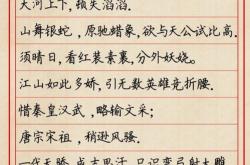 大河上下，顿失滔滔。
山舞银蛇，原驰蜡象，欲与天公试比高。
须晴日，看红装素裹，分外妖娆。
江山如此多娇，引无数英雄竞折腰。
惜秦皇汉武，略输文采；
唐宗宋祖，稍逊风骚。
一代天骄，成吉思汗，只识弯弓射大雕